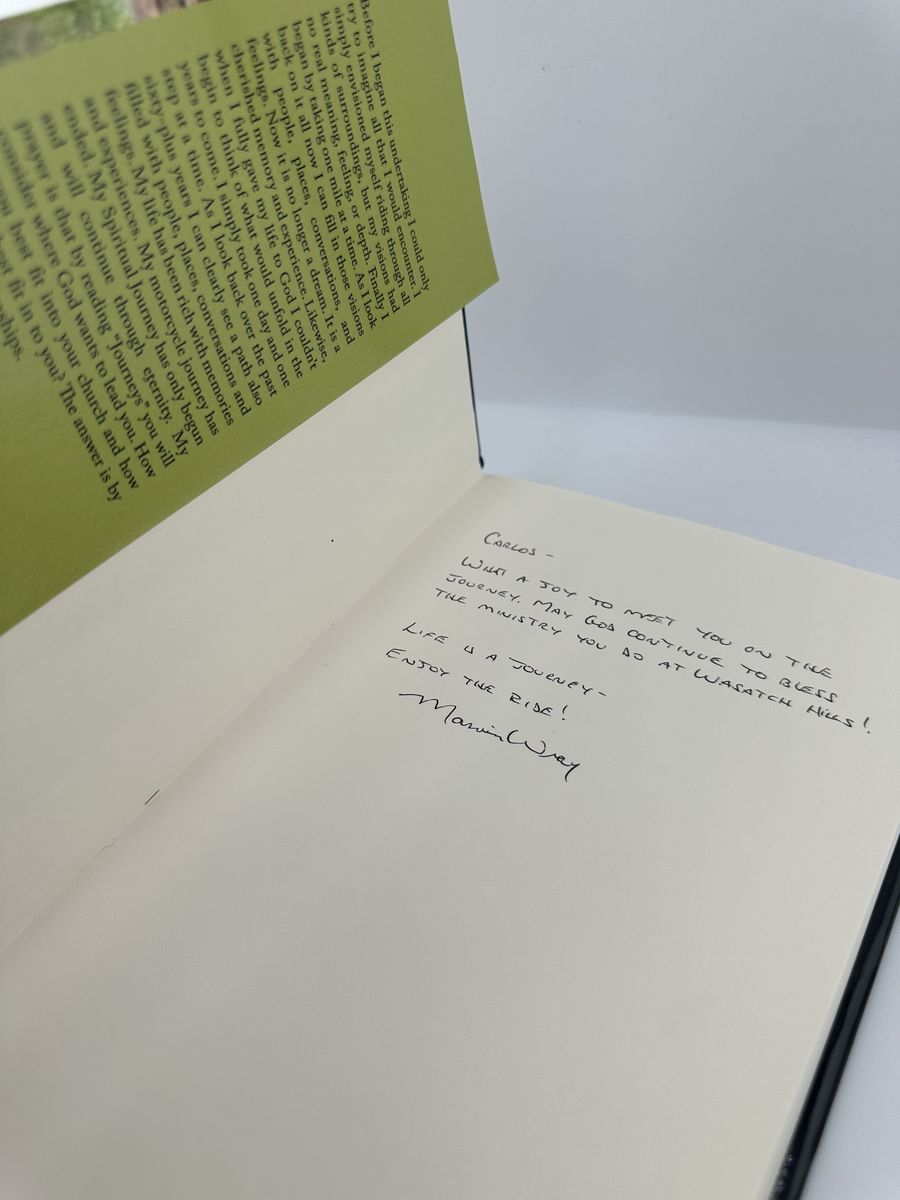 Before I began this undertaking I could only
try to imagine all that I would encounter. I
simply envisioned myself riding through all
kinds of surroundings, but my visions had
no real meaning, feeling, or depth. Finally I
began by taking one mile at a time. As I look
back on it all now I can fill in those visions
with people, places, conversations, and
feelings. Now it is no longer a dream. It is a
cherished memory and experience. Likewise,
when I fully gave my life to God I couldn't
begin to think of what would unfold in the
years to come. I simply took one day and one
step at a time. As I look back over the past
sixty plus years I can clearly see a path also
filled with people, places, conversations and
feelings. My life has been rich with memories
and experiences. My motorcycle journey has
ended. My Spiritual Journey has only begun
and will continue through eternity. My
prayer is that by reading "Journeys" you will
consider where God wants to lead you. How
you best fit into your church and how
best fit in to you? The answer is by
ships.
CARLOS -
WHAT A JOY TO MEET YOU ON THE
JOURNEY. MAY GOD CONTINUE TO BLESS
THE MINISTRY YOU DO AT WASATCH HILLS!
LIFE IS A JOURNEY-
ENJOY THE RIDE!
Marvin Wray